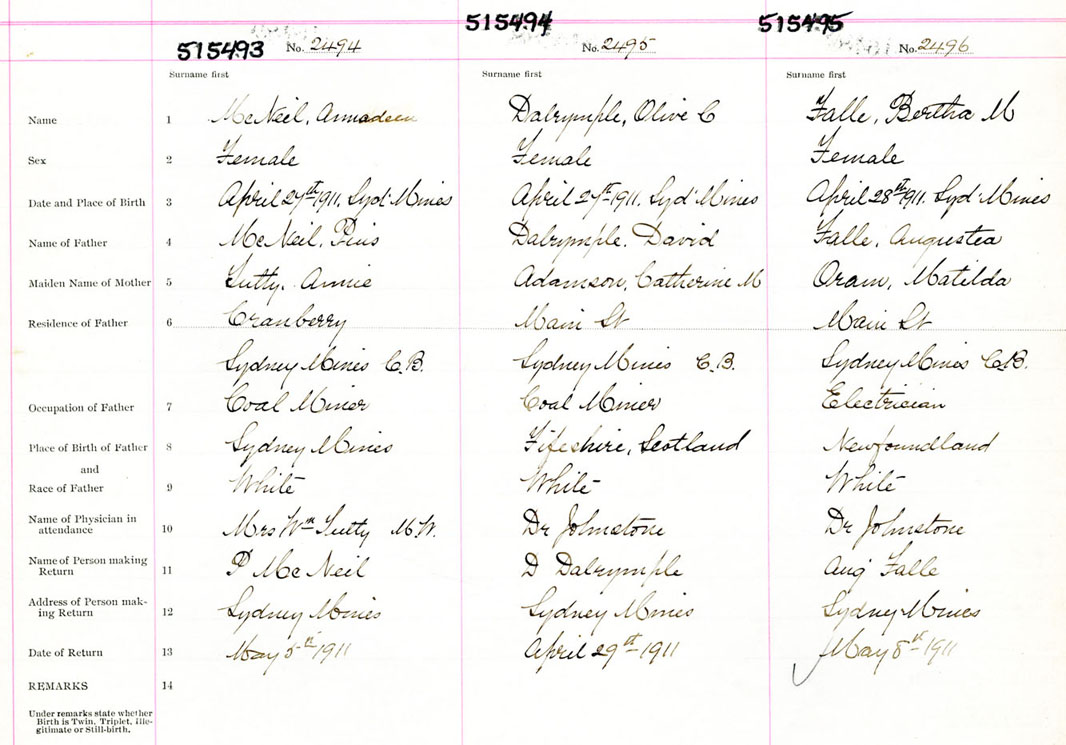 515493 No. 2494 515494 No. 2495 515495 No. 2496
Surname first Surname first Surname first
Name 1 McNeil, Annadeen Dalrymple, Olive C Falle, Bertha M
Sex 2 Female Female Female
Date and Place of Birth 3 April 27th 1911, Syd Mines April 27th 1911, Syd Mines April 28th 1911, Syd Mines
Name of Father 4 McNeil, Pius Dalrymple. David Falle, Augustea
Maiden Name of Mother 5 Annie Adamson, Catherine M Oram, Matilda
Residence of Father 6 Cranberry Main St Main St
Sydney Mines C.B. Sydney Mines C.B. Sydney Mines C.B.
Occupation of Father 7 Coal Miner Coal Miner Electrician
Place of Birth of Father 8 Sydney Mines Fifeshire, Scotland Newfoundland
and
Race of Father 9 White White White
Name of Physician in
attendance 10 Mrs Wm M.W. Dr Johnstone Dr Johnstone
Name of Person making
Return 11 P McNeil D Dalrymple Aug Falle
Address of Person mak-
ing Return 12 Sydney Mines Sydney Mines Sydney Mines
Date of Return 13 May 5th 1911 April 29th 1911 May 8th 1911
REMARKS 14
Under remarks state whether
Birth is Twin, Triplet, Ille-
gitimate or Still-birth.